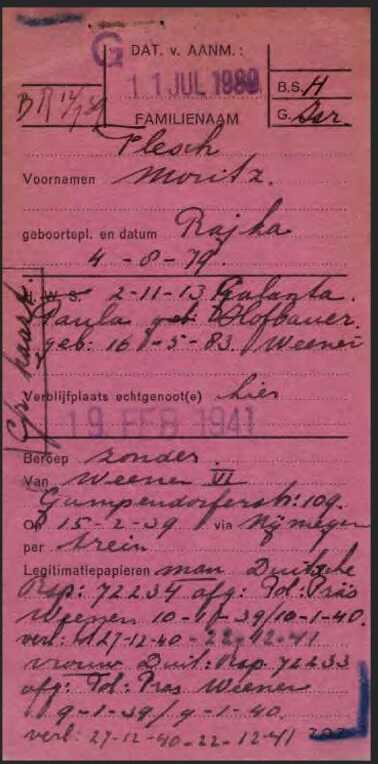 G
DAT. v. AANM.:
11 JUL 1939
B.S. H
G. Isr.
BR 12/7 39
FAMILIENAAM
Plesch
Voornamen Moritz.
geboortepl. en datum Rajka
4-8-79.
H. W. S. 2-11-13 Galanta.
Paula geb: Hofbauer.
geb: 16-5-83. Weenen
Op kaart.
Verblijfplaats echtgenoot(e) hier
19 FEB 1941
Beroep zonder.
Van Weenen VI
Gumpendorferstr: 109.
Op 15-2-39 via Nijmegen
per trein
Legitimatiepapieren man Duitsche
Rsp: 72234 afg: Pol: Präs
Weenen 10-1-39/10-1-40.
verl: 27-12-40-22-12-41
vrouw Duit: Rsp 72233
afg: Pol: Pras Weenen
9-1-39/9-1-40.
verl: 27-12-40-22-12-41